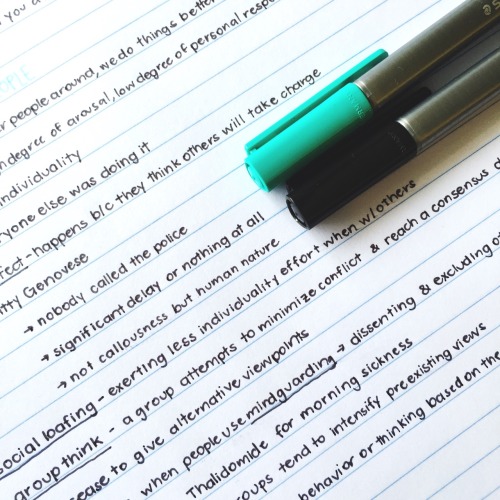 you a
OPLE
r people around, we do things bette
degree of arousal, low degree of personal respon
individuality
ryone else was doing it
fect - happens b/c they think others will take charge
itty Genovese
→ nobody called the police
→ significant delay or nothing at all
→ not callousness but human nature
social loafing - exerting less individuality effort when w/others
group think - a group attempts to minimize conflict & reach a consensus
cease to give alternative viewpoints
when people use mindguarding → dissenting & excluding
Thalidomide for morning sickness
roups tend to intensify preexisting views
behavior or thinking based on the